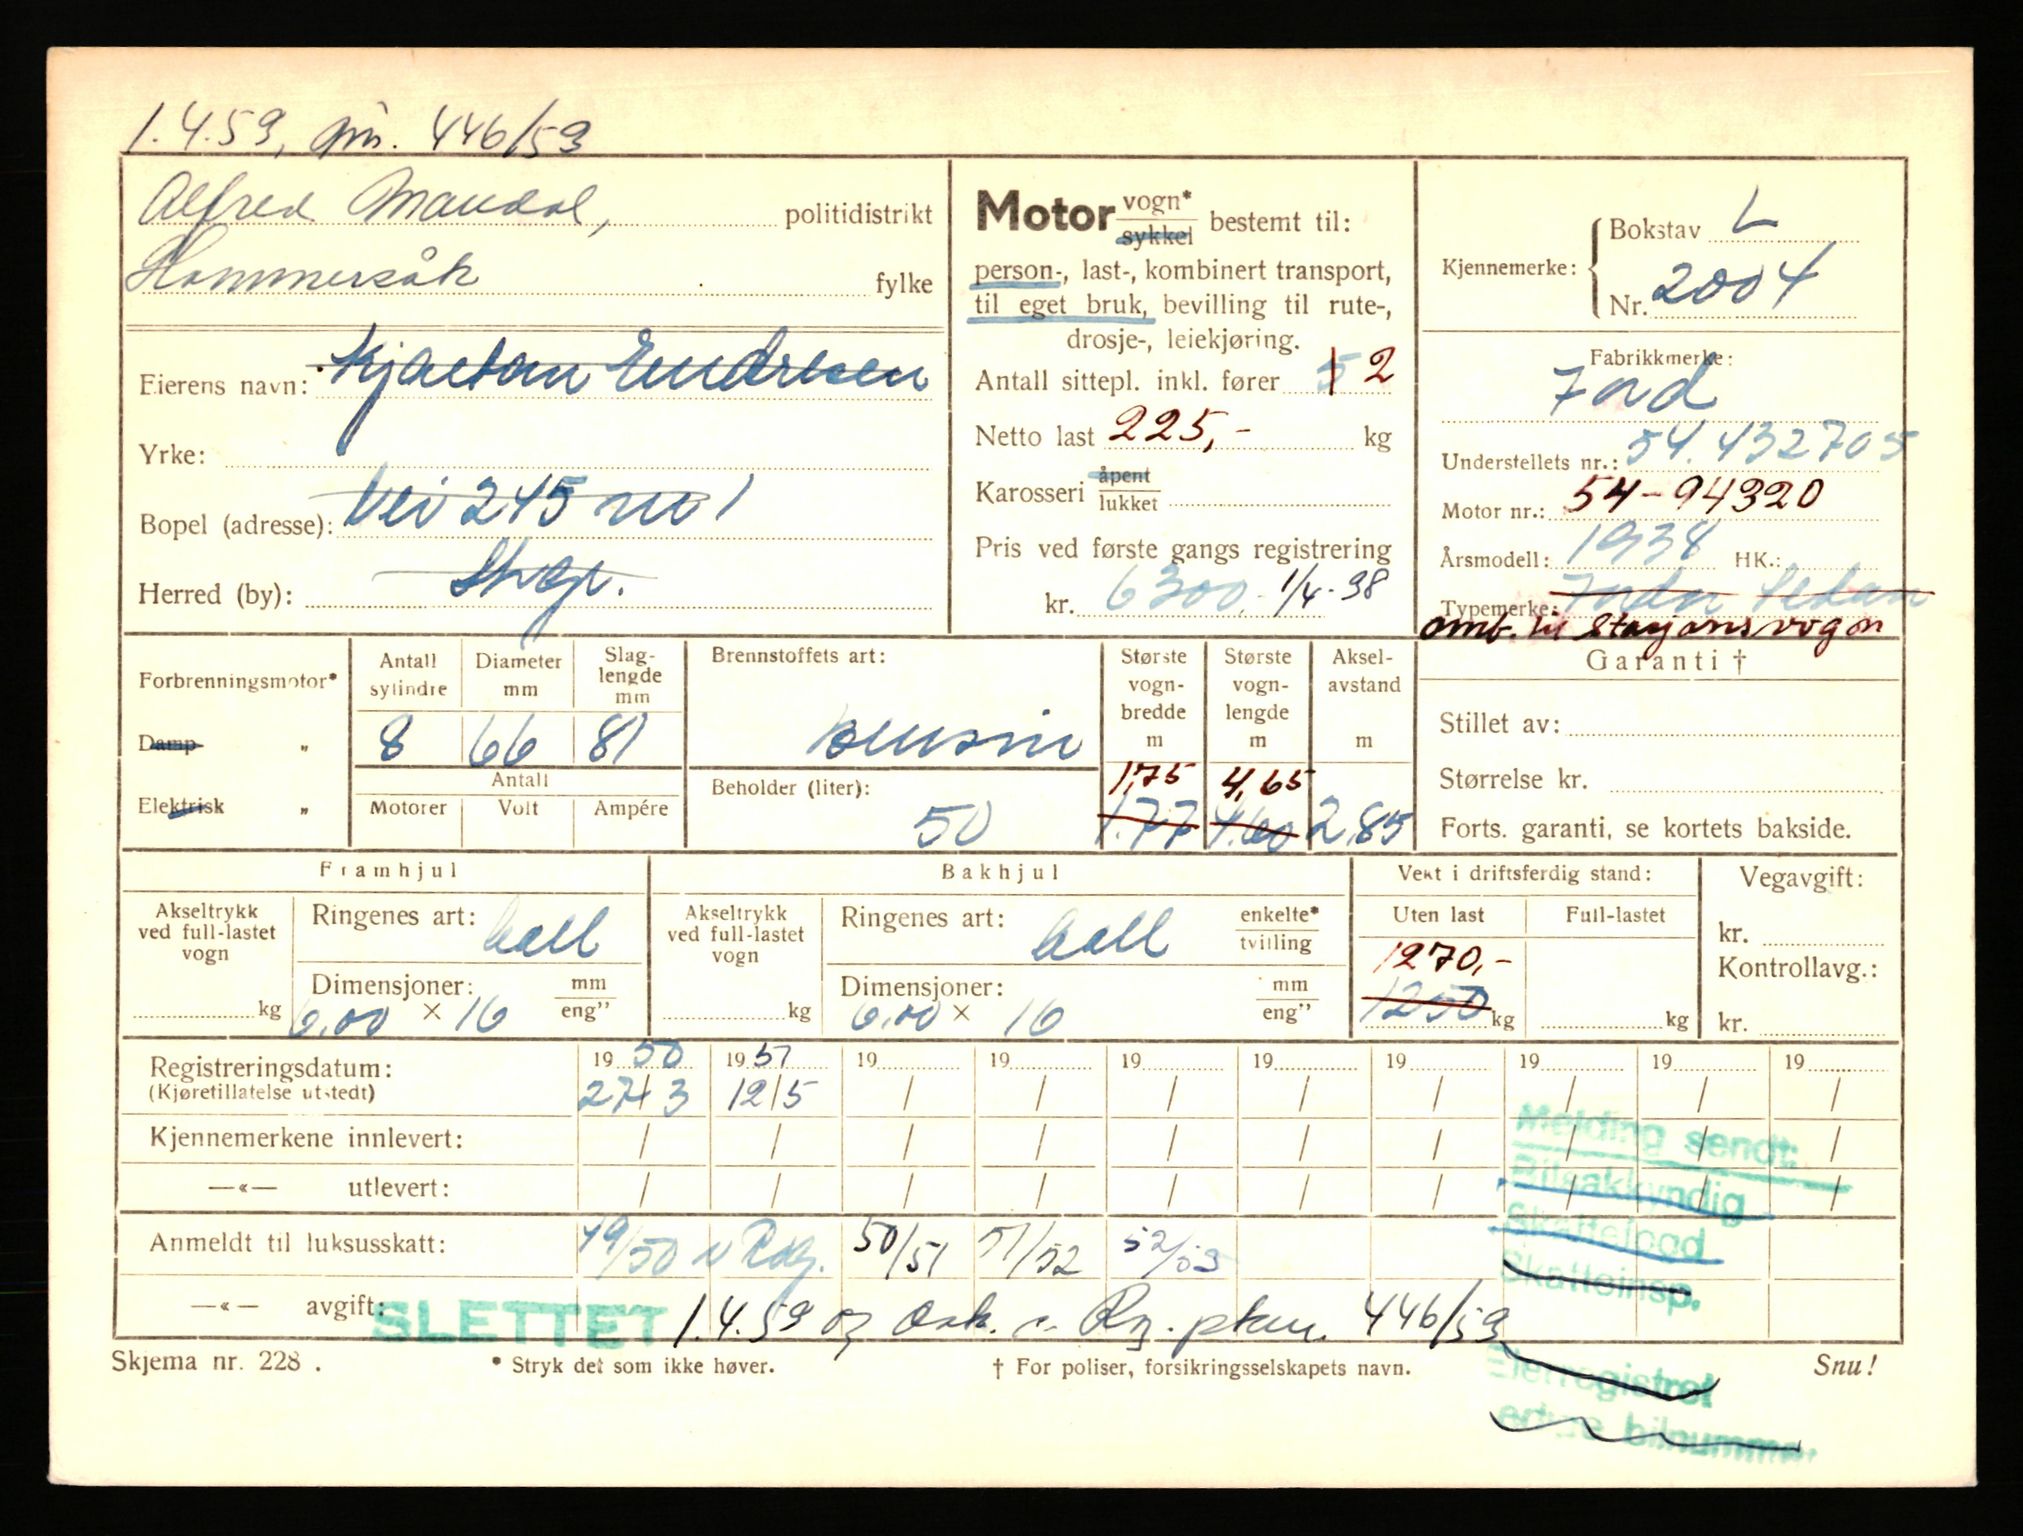 1.4.59, 446/59
Alfred Maudal, politidistrikt
Hommersåk fylke
Eierens navn: Kjartan Endresen
Yrke:
Bopel (adresse): Vei 245 nr 1
Herred (by):
Motor vogn* sykkel bestemt til:
person-, last-, kombinert transport,
til eget bruk, bevilling til rute-,
drosje-, leiekjøring.
Antall sittepl. inkl. fører 5 2
Netto last 225,- kg
Karosseri åpent lukket
Pris ved første gangs registrering
kr. 6300,- 1/4-38
Kjennemerke: Bokstav L
Nr. 2004
Fabrikkmerke:
Ford
Understellets nr.: 54.432705
Motor nr.: 54-94320
Årsmodell: 1938 HK.:
Typemerke: Fordor Sedan
omb. til Stasjonsvogn
Forbrenningsmotor*
Damp "
Elektrisk "
Antall sylindre Diameter mm Slag-lengde mm
8 66 81
Antall
Motorer Volt Ampére
Brennstoffets art:
bensin
Beholder (liter):
50
Største vogn-bredde m Største vogn-lengde m Aksel-avstand m
1,75 4,65
1.77 4.60 2,85
Garanti †
Stillet av:
Størrelse kr.
Forts. garanti, se kortets bakside.
Framhjul
Akseltrykk ved full-lastet vogn
kg
Ringenes art: ball
Dimensjoner: mm eng"
6,00 × 16
Bakhjul
Akseltrykk ved full-lastet vogn
kg
Ringenes art: ball enkelte* tvilling
Dimensjoner: mm eng"
6,00 × 16
Vekt i driftsferdig stand:
Uten last Full-lastet
1270,-
1250 kg kg
Vegavgift:
kr.
Kontrollavg.:
kr.
Registreringsdatum: 1950 1951 19 19 19 19 19 19 19 19
(Kjøretillatelse utstedt) 27/3 12/5 / / / / / / / /
Kjennemerkene innlevert: / / / / / / / / /
—«— utlevert: / / / / / / / / /
Melding sendt:
Bilsakkyndig
Skattefogd
Skatteinsp.
Anmeldt til luksusskatt: 49/50 50/51 51/52 52/53
—«— avgift:
SLETTET 1.4.59 446/59
Skjema nr. 228.
* Stryk det som ikke høver.
† For poliser, forsikringsselskapets navn.
Snu!
Eierregistret